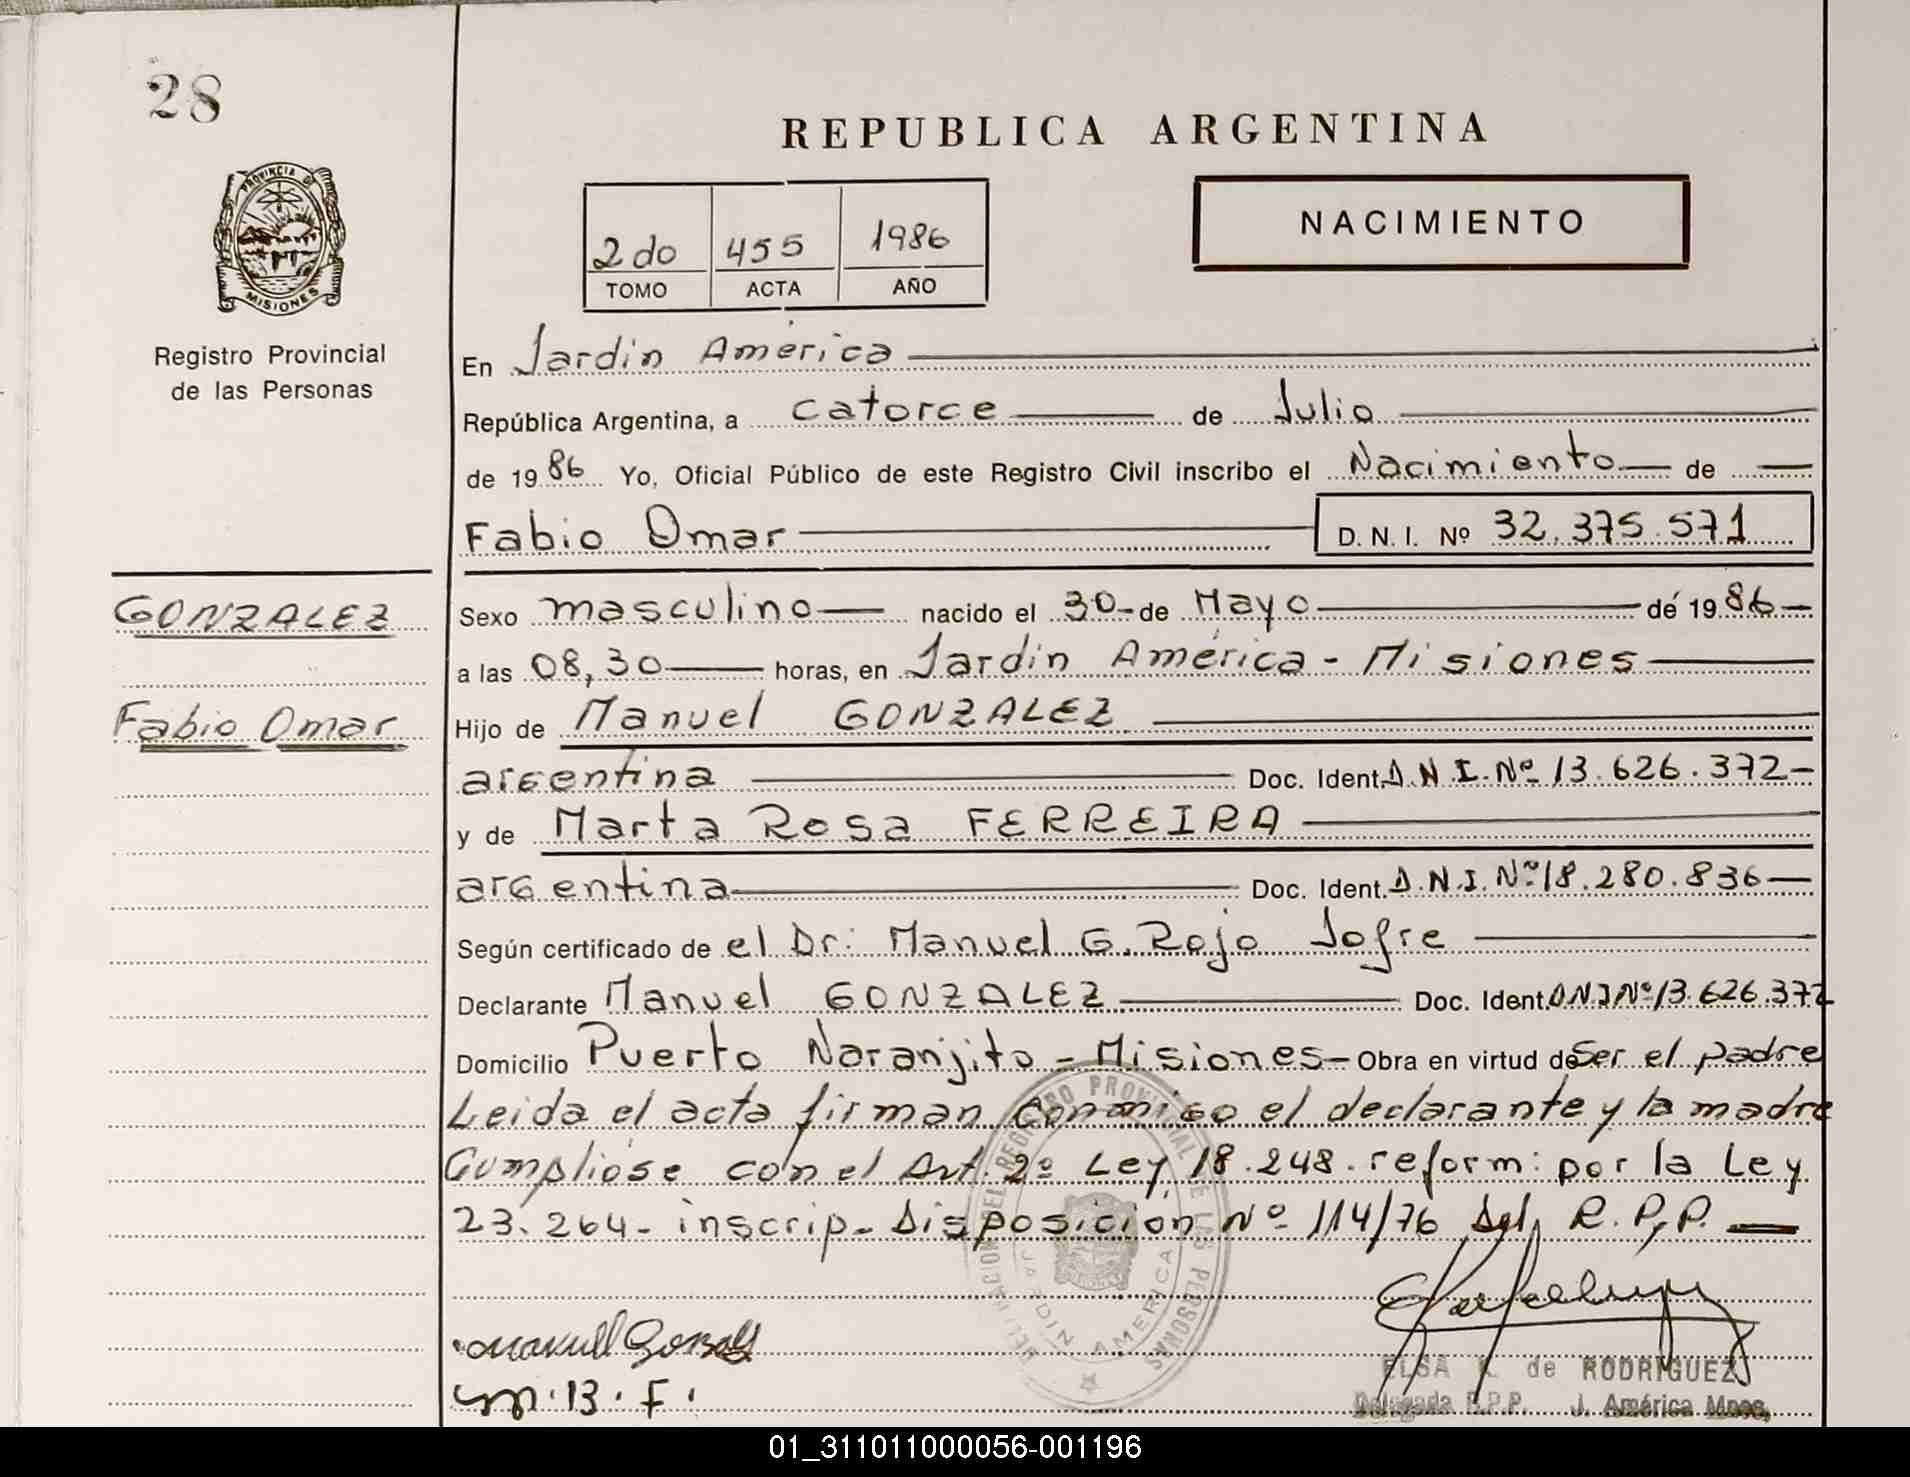 28
REPUBLICA ARGENTINA
PROVINCIA DE
MISIONES
Registro Provincial
de las Personas
2do 455 1986
TOMO ACTA AÑO
NACIMIENTO
En Jardin América
República Argentina, a catorce de Julio
de 1986 Yo, Oficial Público de este Registro Civil inscribo el Nacimiento de
Fabio Omar D. N. I. Nº 32.375.571
GONZALEZ
Fabio Omar
Sexo masculino nacido el 30 de Mayo de 1986
a las 08,30 horas, en Jardin América - Misiones
Hijo de Manuel GONZALEZ
argentina Doc. Ident. D.N.I. Nº 13.626.372
y de Marta Rosa FERREIRA
argentina Doc. Ident. D.N.I. Nº 18.280.836
Según certificado de el Dr: Manuel G. Rojo Jofre
Declarante Manuel GONZALEZ Doc. Ident. DNI Nº 13.626.372
Domicilio Puerto Naranjito - Misiones - Obra en virtud de Ser el padre
Leida el acta firman conmigo el declarante y la madre
Cumpliose con el Art. 2º Ley 18.248. reform: por la Ley
23.264- inscrip- Disposicion Nº 114/76 del R.P.P.
DELEGACION DEL REGISTRO PROVINCIAL DE LAS PERSONAS
JARDIN AMERICA
Manuel
M.B.F.
ELSA de RODRIGUEZ
Delegada R.P.P. J. América Mnes.
01_311011000056-001196